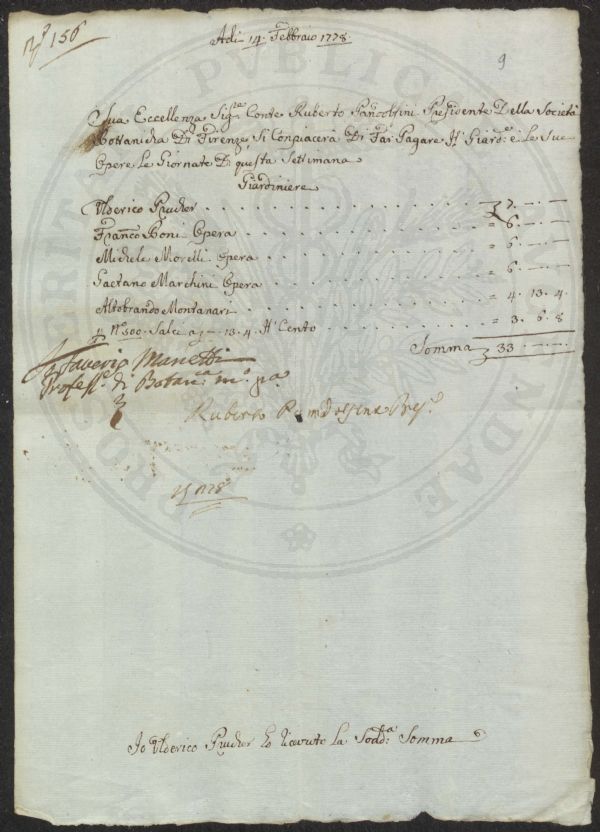 N° 156
Adi 14. Febbraio 1778
9
Sua Eccellenza Sig:re Conte Ruberto Pandolfini Presidente Della Società
Bottanicha Di Firenze, Si Conpiacerà Di Far Pagare Il Giard:e e Le Sue
Opere Le Giornate Di questa Settimana
Giardiniere
Ulderico Prucker . . . . . . . . . . . . . . 7. —. —
Franc:o Boni Opera . . . . . . . . . . . . = 6. —. —
Michele Morelli Opera . . . . . . . . . . = 6. —. —
Gaetano Marchini Opera . . . . . . . . = 6. —. —
Aldobrando Montanari . . . . . . . . . = 4. 13. 4
p N° 500. Salci a 13. 4. Il Cento . . . . . = 3. 6. 8
Somma 33 —. —
Saverio Manetti
Profess:e di Botan:ca m:o pa
Ruberto Pandolfini Pres:e
1778
PROSPERITATI PUBLICAE AUGENDAE
Io Ulderico Prucker ho Ricevuto La Sodd:a Somma